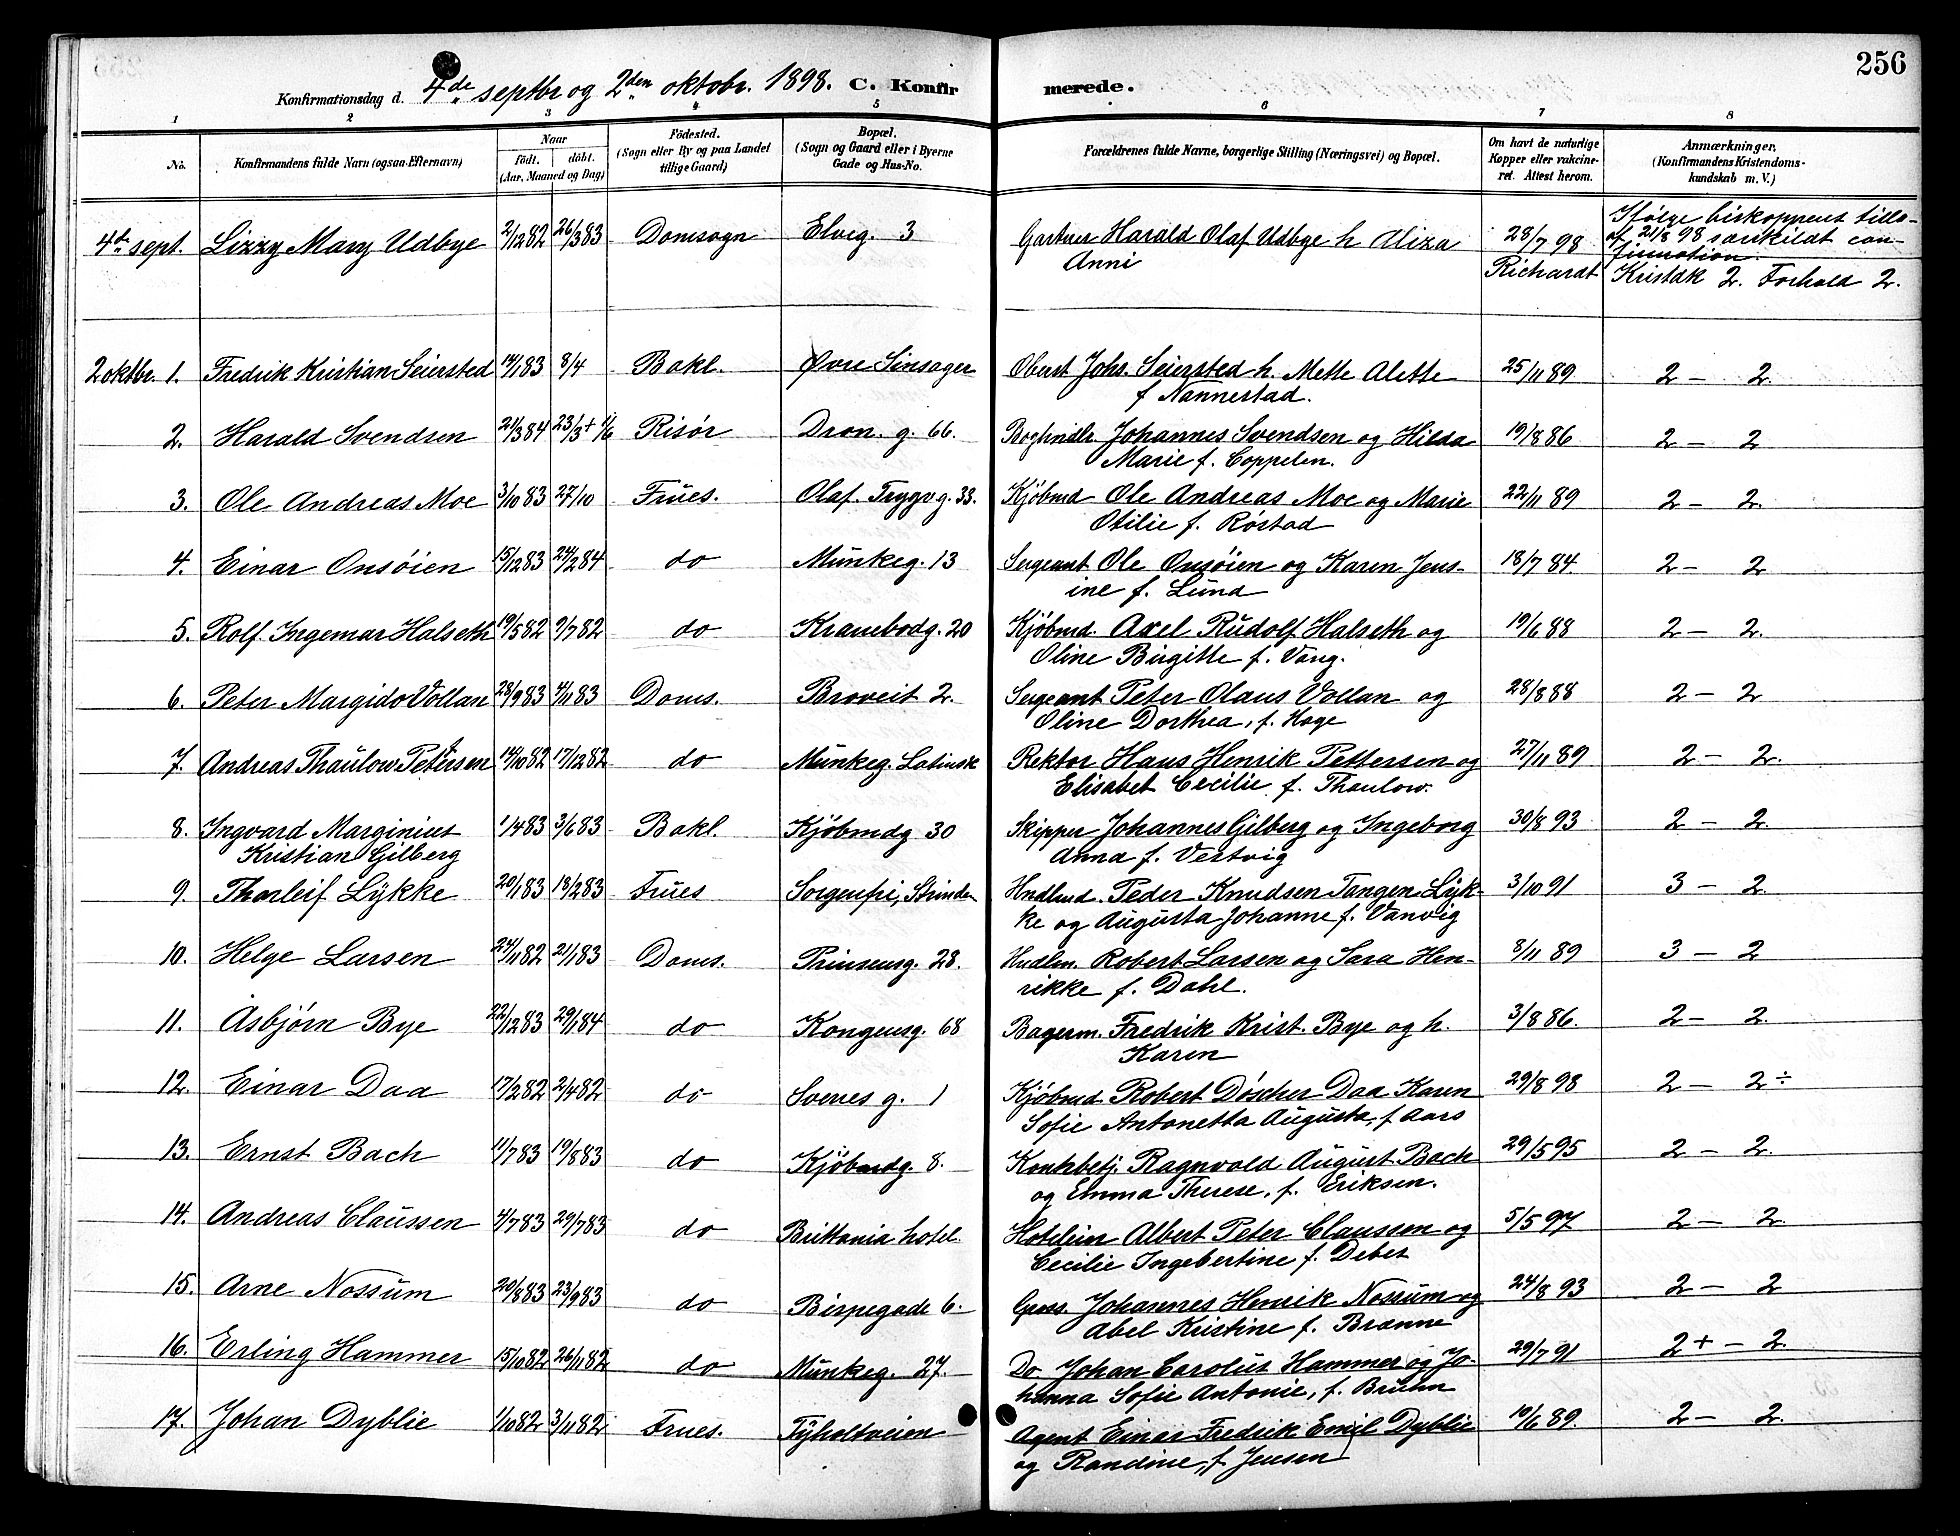 256
Konfirmationsdag d. 4de septbr og 2den oktobr. 1898. C. Konfir merede.
1 2 3 4 5 6 7 8
No. Konfirmandens fulde Navn (ogsaa Efternavn) Naar födt. döbt. (Aar, Maaned og Dag) Födested. (Sogn eller By og paa Landet tillige Gaard) Bopæl. (Sogn og Gaard eller i Byerne Gade og Hus-No. Forældrenes fulde Navne, borgerlige Stilling (Næringsvei) og Bopæl. Om havt de naturlige Kopper eller vakcineret. Attest herom. Anmærkninger. (Konfirmandens Kristendomskundskab m. V.)
4de sept. Lizzy Mary Udbye 2/12 82 26/3 83 Domsogn Elveg. 3 Gartner Harald Olaf Udbye h Aliza 28/7 98 Ifölge biskoppens tilla-
Anni Richardt af 21/8 98 særskildt con-
firmation.
Kristdk 2. Forhold 2.
2 oktbr. 1. Fredrik Kristian Seiersted 14/1 83 8/4 Bakl. Øvre Sinsager Oberst Johs. Seiersted h. Mette Alette 25/11 89 2 – 2.
f Nannestad.
2. Harald Svendsen 21/3 84 23/3 + 1/6 Risör Dron. g. 66. Boghndlr Johannes Svendsen og Hilda 19/8 86 2 – 2
Marie f. Coppelen.
3. Ole Andreas Moe 3/10 83 27/10 Frues. Olaf. Trygv g. 33. Kjöbmd Ole Andreas Moe og Marie 22/11 89 2 – 2.
Otilie f. Röstad
4. Einar Onsöien 15/12 83 24/2 84 do Munkeg. 13 Sergeant Ole Onsöien og Karen Jens- 18/7 84. 2 – 2
ine f. Lund
5. Rolf. Ingemar Halseth 19/5 82 9/7 82 do Kranebodg. 20 Kjöbmd. Axel Rudolf Halseth og 19/6 88 2 – 2.
Oline Birgitte f. Vang.
6. Peter Margido Vollan 28/9 83 4/11 83 Doms. Broveit 2. Sergeant Peter Olaus Vollan og 28/8 88 2 – 2
Oline Dorthea, f. Hage
7. Andreas Thaulow Petersen 14/10 82 17/12 82 do Munkeg. Latinsk Rektor Hans Henrik Pettersen og 27/11 89 2 – 2.
Elisabet Cecilie f. Thaulow.
8. Ingvard Marginius 1/4 83 3/6 83 Bakl. Kjöbmdg 30 Skipper Johannes Gilberg og Ingeborg 30/8 93 2 – 2.
Kristian Gilberg Anna f. Vestvig
9. Thorleif Lykke 20/1 83 18/2 83 Frues Sorgenfri, Strinden Hndlmd. Peder Knudsen Tangen Lyk- 3/10 91 3 – 2.
ke og Augusta Johanne f. Vanvig
10. Helge Larsen 24/11 82 21/1 83 Doms. Prinsensg. 28. Hndlm. Robert Larsen og Sara Hen- 8/11 89 3 – 2
rikke f. Dahl.
11. Asbjörn Bye 22/12 83 29/1 84 do Kongensg. 68 Bagerm. Fredrik Krist. Bye og h. 3/8 86. 2 – 2.
Karen
12. Einar Daa 17/2 82 2/4 82 do Svenes g. 1 Kjöbmd Robert Döscher Daa Karen 29/8 98 2 – 2 ÷
Sofie Antonetta Augusta, f Aars
13. Ernst Bach 11/7 83 19/8 83 do Kjöbmdg. 8. Kontrbetj. Ragnvald August Bach 29/5 95 2 – 2.
og Emma Therese, f. Eriksen.
14. Andreas Claussen 4/7 83 29/7 83 do Brittania hotel. Hoteleier Albert Peter Claussen og 5/5 97 2 – 2.
Cecilie Ingebertine f. Debes
15. Arne Nossum 20/8 83 23/9 83 do Bispegade 6. Gross. Johannes Henrik Nossum og 24/8 93 2 – 2
Abel Kristine f. Brænne
16. Erling Hammer 15/10 82 26/11 82 do Munkeg. 27. Do Johan Carolus Hammer og Jo- 29/7 91 2+ – 2.
hanna Sofie Antonie, f. Bruhn
17. Johan Dyblie 1/10 82 3/11 82 Frues. Tyholtveien Agent Einar Fredrik Emil Dyblie 10/6 89. 2 – 2.
og Randine, f Jensen